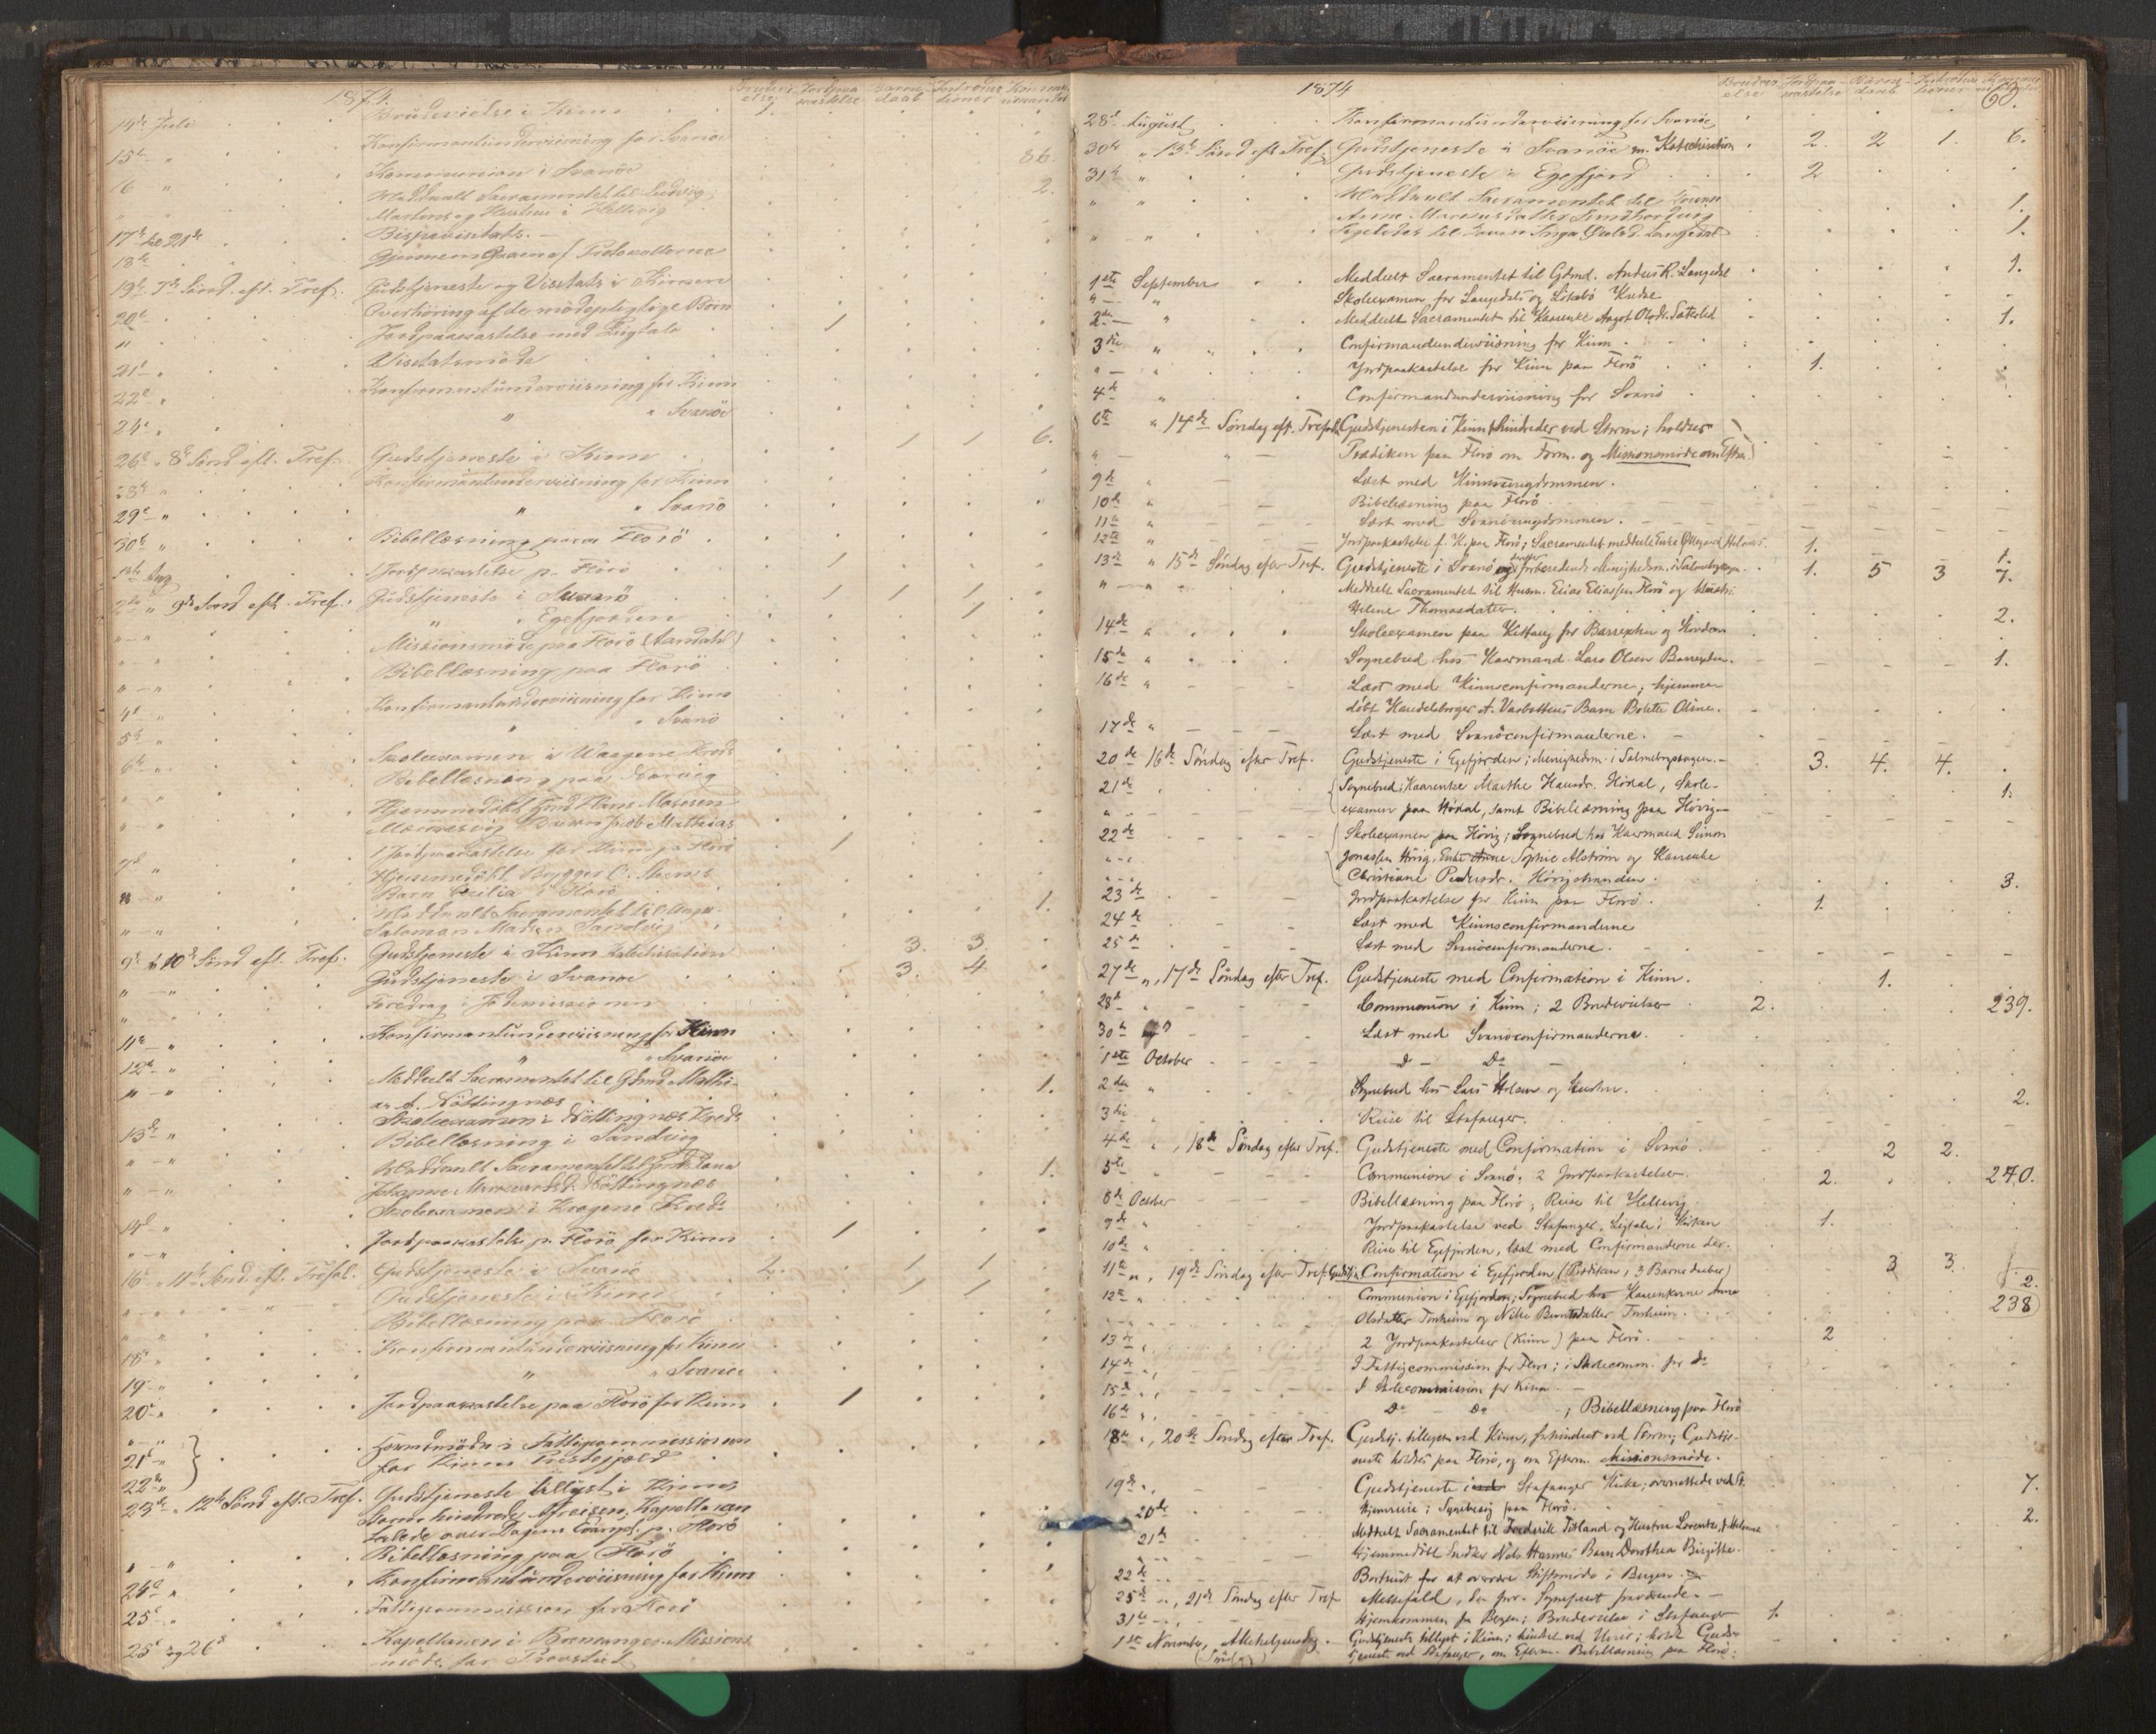 1874.
Brudevi- else Jordpaa- kastelse Barne- daab Introduc- tioner Kommu- nikanter
14de Juli Brudevielse i Kinn 1.
15de " Konfirmantundervisning for Svanöe
16 " Kommunion i Svanöe 86.
" " Meddeelt Sacramentet til Ludvig 2.
Martens og Hustru i Hellevig
17de til 21de Bispevisitats. —
18de Gjennemgaaen af Protocollerne
19de 7de Sönd. eft. Tref. Gudstjeneste og Visitats i Kinn
20de Overhöring af de mödepligtige Börn
" Jordpaakastelse med Liigtale 1
21de " Visitatsmöde
22de " Konfirmantundervisning for Kinn
24de " " " Svanöe
26de " 8de Sönd eft. Tref. Gudstjeneste i Kinn 1 1 6.
28de " Konfirmantundervisning for Kinn
29de " " " Svanö
30de " Bibellæsning paa Florö
1ste Aug Jordpaakastelse p. Florö 1
2den " 9de Sönd eft. Tref. Gudstjeneste i Svanö 1 1 1
" " Egefjorden 1
" — " Missionsmöde paa Florö (Aandahl)
" — " Bibellæsning paa Florö
4de " Konfirmantundervisning for Kinn
5te " " " Svanö
6te " Skoleexamen i Waagene Kreds
" " Bibellæsning paa
" " Hjemmedöbt Gmd Hans Mosesen
Barn Jacob Mathias
7de " 1 Jordpaakastelse for Kinn p. Florö 1
" — " Hjemmedöbt Brygger C.
Barn Cecilia i Florö
" — " Meddeelt Sacramentet til 1.
Salomon Madsen Sandvig
9de " 10de Sönd eft. Tref. Gudstjeneste i Kinn Katechisation 3. 3.
" — " Gudstjeneste i Svanöe 3. 4
" Foredrag i
11te " Konfirmantundervisning for Kinn
12te " " " Svanöe
" — " Meddeelt Sacramentet til Gdmd Mathi- 1.
as A. Nöttingnæs
13de " Skoleexamen i Nöttingnæs Kreds
" — " Bibellæsning i Sandvig
" — " Meddeelt Sacramentet til 1.
Johanne Nöttingnæs
14de " Skoleexamen i Krogene Kreds
" — " Jordpaakastelse p. Florö for Kinn 1
16de " 11te Sönd. eft. Trefol. Gudstjeneste i Svanö 2. 1 1
Gudstjeneste i Kinn 1 1
Bibellæsning paa Florö
18de " Konfirmantundervisning for Kinn
19de " " " Svanöe
20de " Jordpaakastelse paa Florö for Kinn 1
21de " Formöde i Fattigcommissionen
22de " for Kinns Præstegjeld
23de " 12te Sönd eft. Tref. Gudstjeneste tillyst i Kinn
Storm hindrede Afreisen, Kapellanen
talede over Dagens Evangel. p. Florö
" " Bibellæsning paa Florö
24de " Konfirmantundervisning for Kinn
25de " Fattigcommission for Florö
25de og 26de Kapellanen i Missions
möde for Provstiet
1874
Brudevi- else Jordpaa- kastelse Barne- daab Introduc- tioner
60.
28de August Konfirmantundervisning for Svanöe
30te " 13de Sönd eft Tref. Gudstjeneste i Svanöe m. Katechisation 2. 2 1. 6.
31te " Gudstjeneste i Egefjord 2
" " Meddeelt Sacramentet til 1.
Anna
" — " Ligeledes til 1.
1ste September Meddelt Sacramentet til Gdmd. Anders R. Langedal 1.
" — " Skoleexamen for Langedals og Kredse
2den — " Meddelt Sacramentet til Kaarenke Aagot Olsdr. 1.
3die " Confirmandundervisning for Kinn
" — " Jordpaakastelse for Kinn paa Florö 1.
4de " Confirmandundervisning for Svanö
6te " 14de Söndag eft. Trefold. Gudstjenesten i Kinn forhindredes ved Storm; holdtes
" — " Prædiken paa Florö om Form. og Missionsmöde om Efterm.
9de " Læst med Kinnsungdommen.
10de " Bibellæsning paa Florö
11te " Læst med Svanöungdommen.
12te " Jordpaakastelse f. K. paa Florö; Sacramentet meddelt Enke 1. 1.
13de " 15de Söndag efter Tref. Gudstjeneste i Svanö forberedende Menighedsm. i Salmebogssagen. 1. 5 3 7.
" — " Meddelt Sacramentet til Husm. Elias Eliassen Florö og Hustru
Helene Thomasdatter. 2.
14de " Skoleexamen paa for Barrexten og
15de " Sognebud hos Kaarmand Lars Olsen Barrexten. 1.
16de " Læst med Kinnsconfirmanderne; hjemme-
döbt Handelsborger A. Barn Bolette Oline.
17de " Læst med Svanöconfirmanderne.
20de 16de Söndag efter Tref. Gudstjeneste i Egefjorden; Menighedsm. i Salmebogssagen. — 3. 4. 4.
21de Sognebud; Kaarenke Marthe Hansdr. Hökal, Skole- 1.
examen paa Hökal, samt Bibellæsning paa Hövig —
22de Skoleexamen paa Hövig; Sognebud hos Kaarmand Simon
Jonassen Hövig, Enke Anne Sophie Alström og Kaarenke
Christiane Pedersdr. Hövigstranden. 3.
23de Jordpaakastelse for Kinn paa Florö. 1.
24de Læst med Kinnsconfirmanderne
25de Læst med Svanöconfirmanderne.
27de ", 17de Söndag efter Tref. Gudstjeneste med Confirmation i Kinn. 1.
28de Communion i Kinn; 2 Brudevielser 2. 239.
30te Læst med Svanöconfirmanderne.
1ste October do — Do
2den " Sognebud hos Lars Holsen og Hustru. 2.
3die Reise til Stafanger.
4de ", 18de Söndag efter Tref. Gudstjeneste med Confirmation i Svanö. 2 2.
5te Communion i Svanö. 2 Jordpaakastelser. 2. 270.
8de October Bibellæsning paa Florö, Reise til Hellevig.
9de " Jordpaakastelse ved Stafanger, Ligtale i Kirken 1.
10de " Reise til Egefjorden, læst med Confirmanderne der.
11te ", 19de Söndag efter Tref. Gudstj. Confirmation i Egefjorden (Prædiken, 3 Barnedaaber) 3 3.
12te " Communion i Egefjorden; Sognebud hos Kaarenkerne Anna 2.
Olsdatter Torheim og Nille Berntsdatter Torheim. 238
13de 2 Jordpaakastelser (Kinn) paa Florö. 2
14de " I Fattigcommission for Florö; i Skolecomm. for do
15de " I Skolecommission for Kinn
16de " Do — Do — ; Bibellæsning paa Florö
18de ", 20de Söndag efter Tref. Gudstj. tillyst ved Kinn, forhindret ved Storm; Gudstje-
neste holdtes paa Florö, og om Efterm. Missionsmöde.
19de " Gudstjeneste i Stafanger Kirke; overnattede ved St. 7.
20de Hjemreise; Sognebesög paa Florö.
21de Meddelt Sacramentet til Frederik Tetland og Hustru 2.
Hjemmedöbt Snedker Nils Hannes Barn Dorothea Birgitte.
22de Bortreist for at overvære Stiftsmöde i Bergen.
25de ", 21de Söndag efter Tref. Messefald, den Sognepræst fraværende. —
31te Hjemkommen fra Bergen; Brudevielse i Stafanger 1.
1ste November, Allehelgensdag. Gudstjeneste tillyst i Kinn; hindret ved Uveir; holdt Guds-
(Söndag) tjeneste ved Stafanger, om Efterm. Bibellæsning paa Florö.